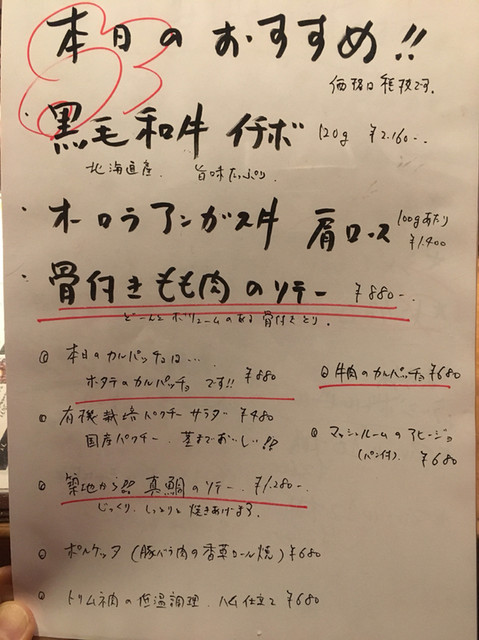 本日のおすすめ!!
価格は税抜です。
・黒毛和牛 イチボ 120g ¥2.160-.
北海道産. 旨味たっぷり.
・オーロラアンガス牛 肩ロース 100gあたり ¥1.400
・骨付きもも肉のソテー ¥880-.
どーんとボリュームのある骨付きとり。
本日のカルパッチョは…
ホタテのカルパッチョです!! ¥880
牛肉のカルパッチョ ¥680
有機栽培パクチーサラダ ¥480
国産パクチー. 茎までおいしい!!
マッシュルームのアヒージョ
(パン付) ¥680
築地から!! 真鯛のソテー. ¥1,280-.
じっくり、しっとりと焼きあげます。
ポルケッタ (豚バラ肉の香草ロール焼) ¥680
トリムネ肉の低温調理. ハム仕立て ¥680